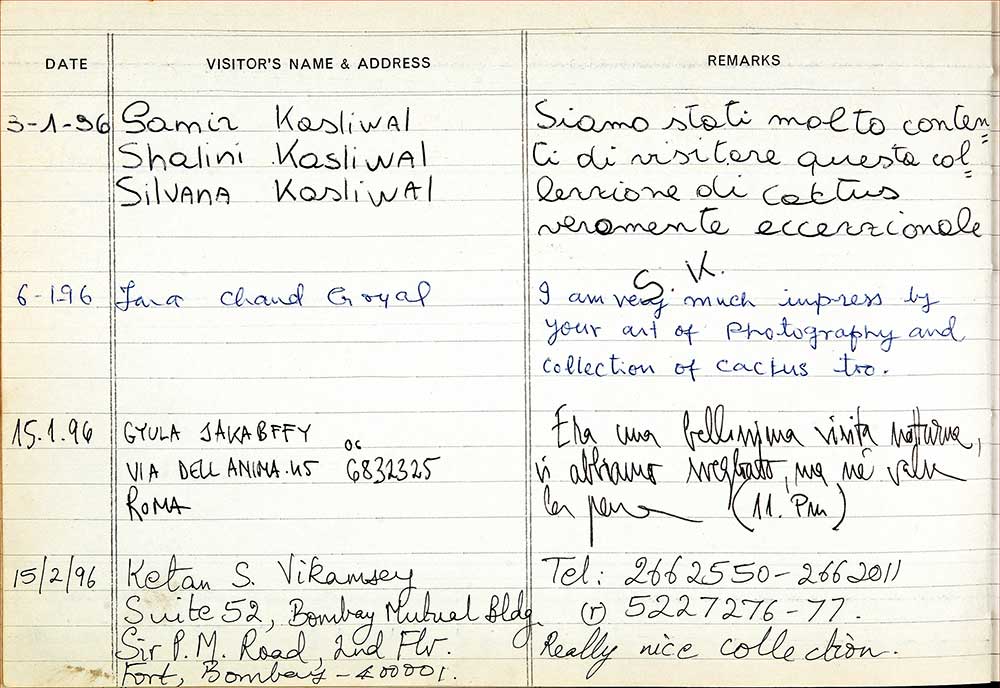 DATE VISITOR'S NAME & ADDRESS REMARKS
3-1-96
Samir Kasliwal
Shalini Kasliwal
Silvana Kasliwal
Siamo stati molto conten=
ti di visitare questa col=
lezzione di cactus
veramente eccezzionale
S. K.
6-1-96
Tara Chand Goyal
I am very much impress by
your art of Photography and
collection of cactus too.
15.1.96
GYULA JAKABFFY
VIA DELL ANIMA 45 06 6832325
ROMA
Era una bellissima visita notturna,
vi abbiamo svegliato, ma ne valeva
la pena (11. Pm)
15/2/96
Ketan S. Vikamsey
Suite 52, Bombay Mutual Bldg.
Sir P.M. Road, 2nd Flr.
Fort, Bombay - 400001.
Tel: 2662550-2662011
(r) 5227276-77.
Really nice collection.